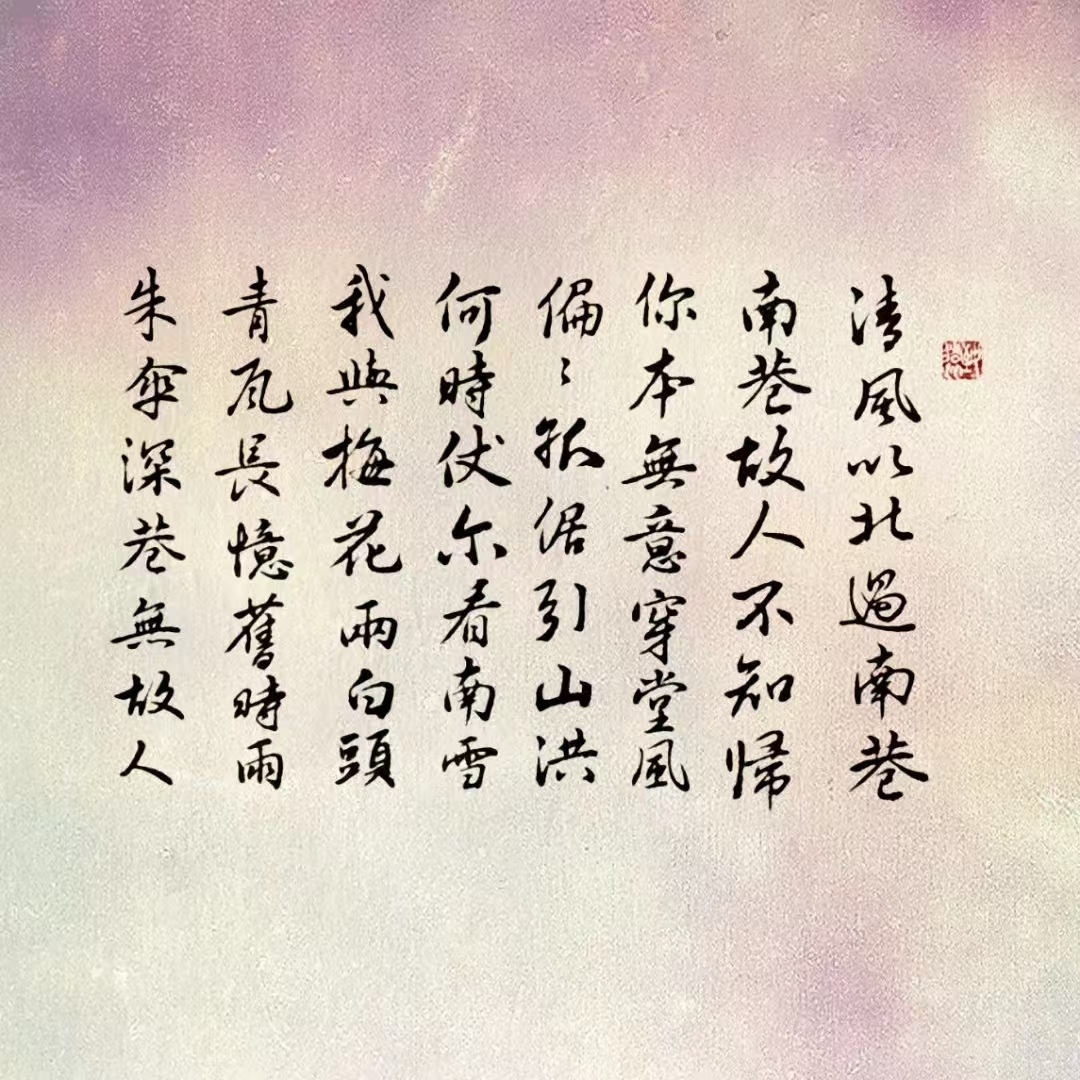 清風以北過南巷
南巷故人不知歸
你本無意穿堂風
偏〻孤倨引山洪
何時仗尔看南雪
我與梅花兩白頭
青瓦長憶舊時雨
朱傘深巷無故人